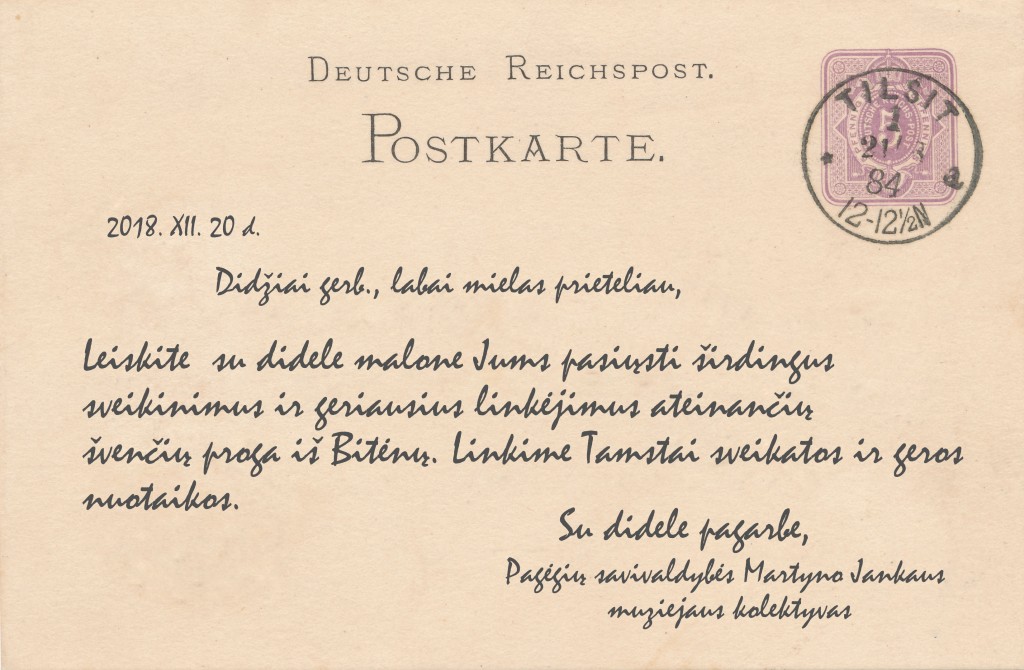 DEUTSCHE REICHSPOST.
POSTKARTE.
TILSIT
84
a
12-12½N
2018. XII. 20 d.
Didžiai gerb., labai mielas prieteliau,
Leiskite su didele malone Jums pasiųsti širdingus
sveikinimus ir geriausius linkėjimus ateinančių
švenčių proga iš Bitėnų. Linkime Tamstai sveikatos ir geros
nuotaikos.
Su didele pagarbe,
Pagėgių savivaldybės Martyno Jankaus
muziejaus kolektyvas